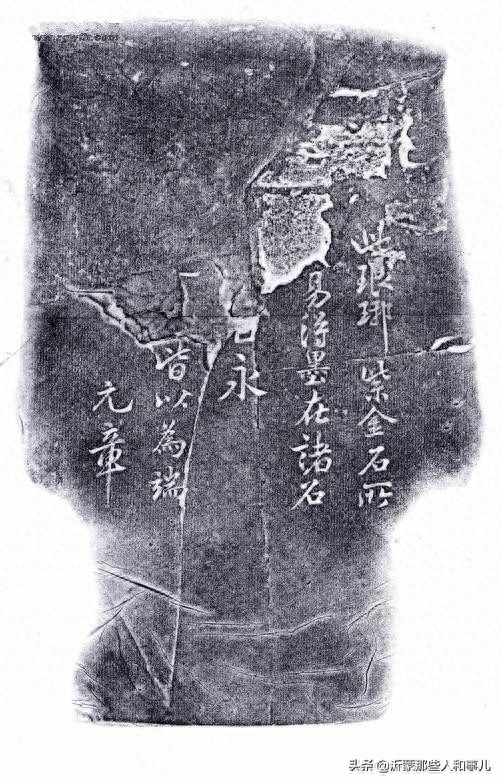 此琅琊紫金石所
易得墨在諸石
永
皆以為端
元章
头条 @沂蒙那些人和事儿